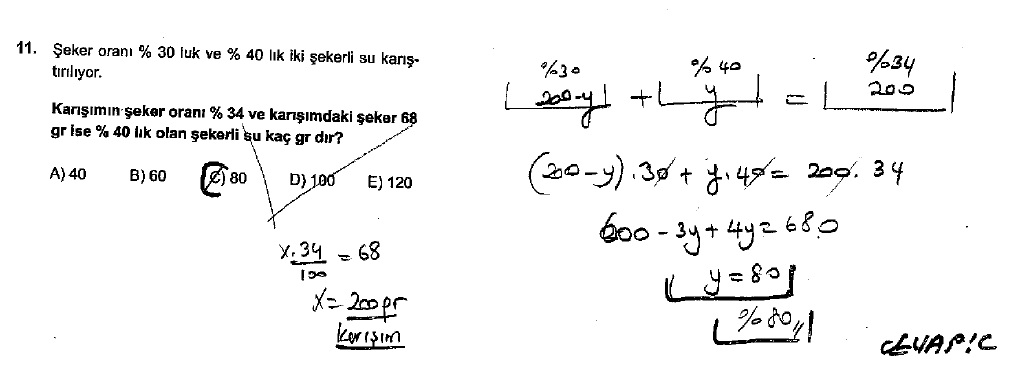 11. Şeker oranı % 30 luk ve % 40 lık iki şekerli su karış-
tırılıyor.
Karışımın şeker oranı % 34 ve karışımdaki şeker 68
gr ise % 40 lık olan şekerli su kaç gr dır?
A) 40 B) 60 C) 80 D) 100 E) 120
x.34/100 = 68
x = 200 gr
Karışım
%30 %40 %34
200-y + y = 200
(200-y).30 + y.40 = 200.34
600 - 3y + 4y = 680
y = 80
%80,,
CEVAP: C